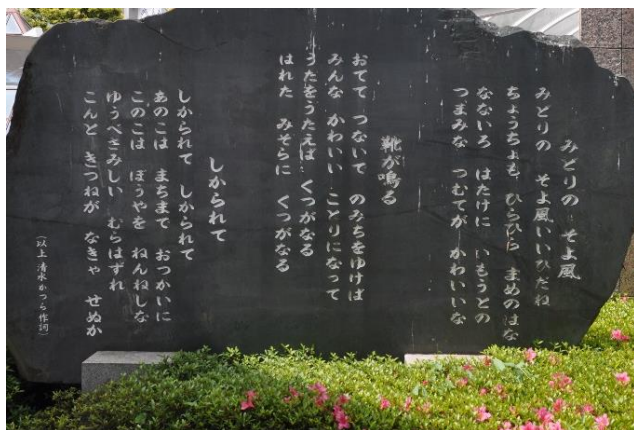 みどりの そよ風
みどりの そよ風いいひだね
ちょうちょも ひらひら まめのはな
なないろ はたけに いもうとの
つまみな つむてが かわいいな
靴が鳴る
おてて つないで のみちをゆけば
みんな かわいい ことりになって
うたをうたえば くつがなる
はれた みそらに くつがなる
しかられて
しかられて しかられて
あのこは まちまで おつかいに
このこは ぼうやを ねんねしな
ゆうべさみしい むらはずれ
こんと きつねが なきゃ せぬか
(以上 清水かつら作詞)